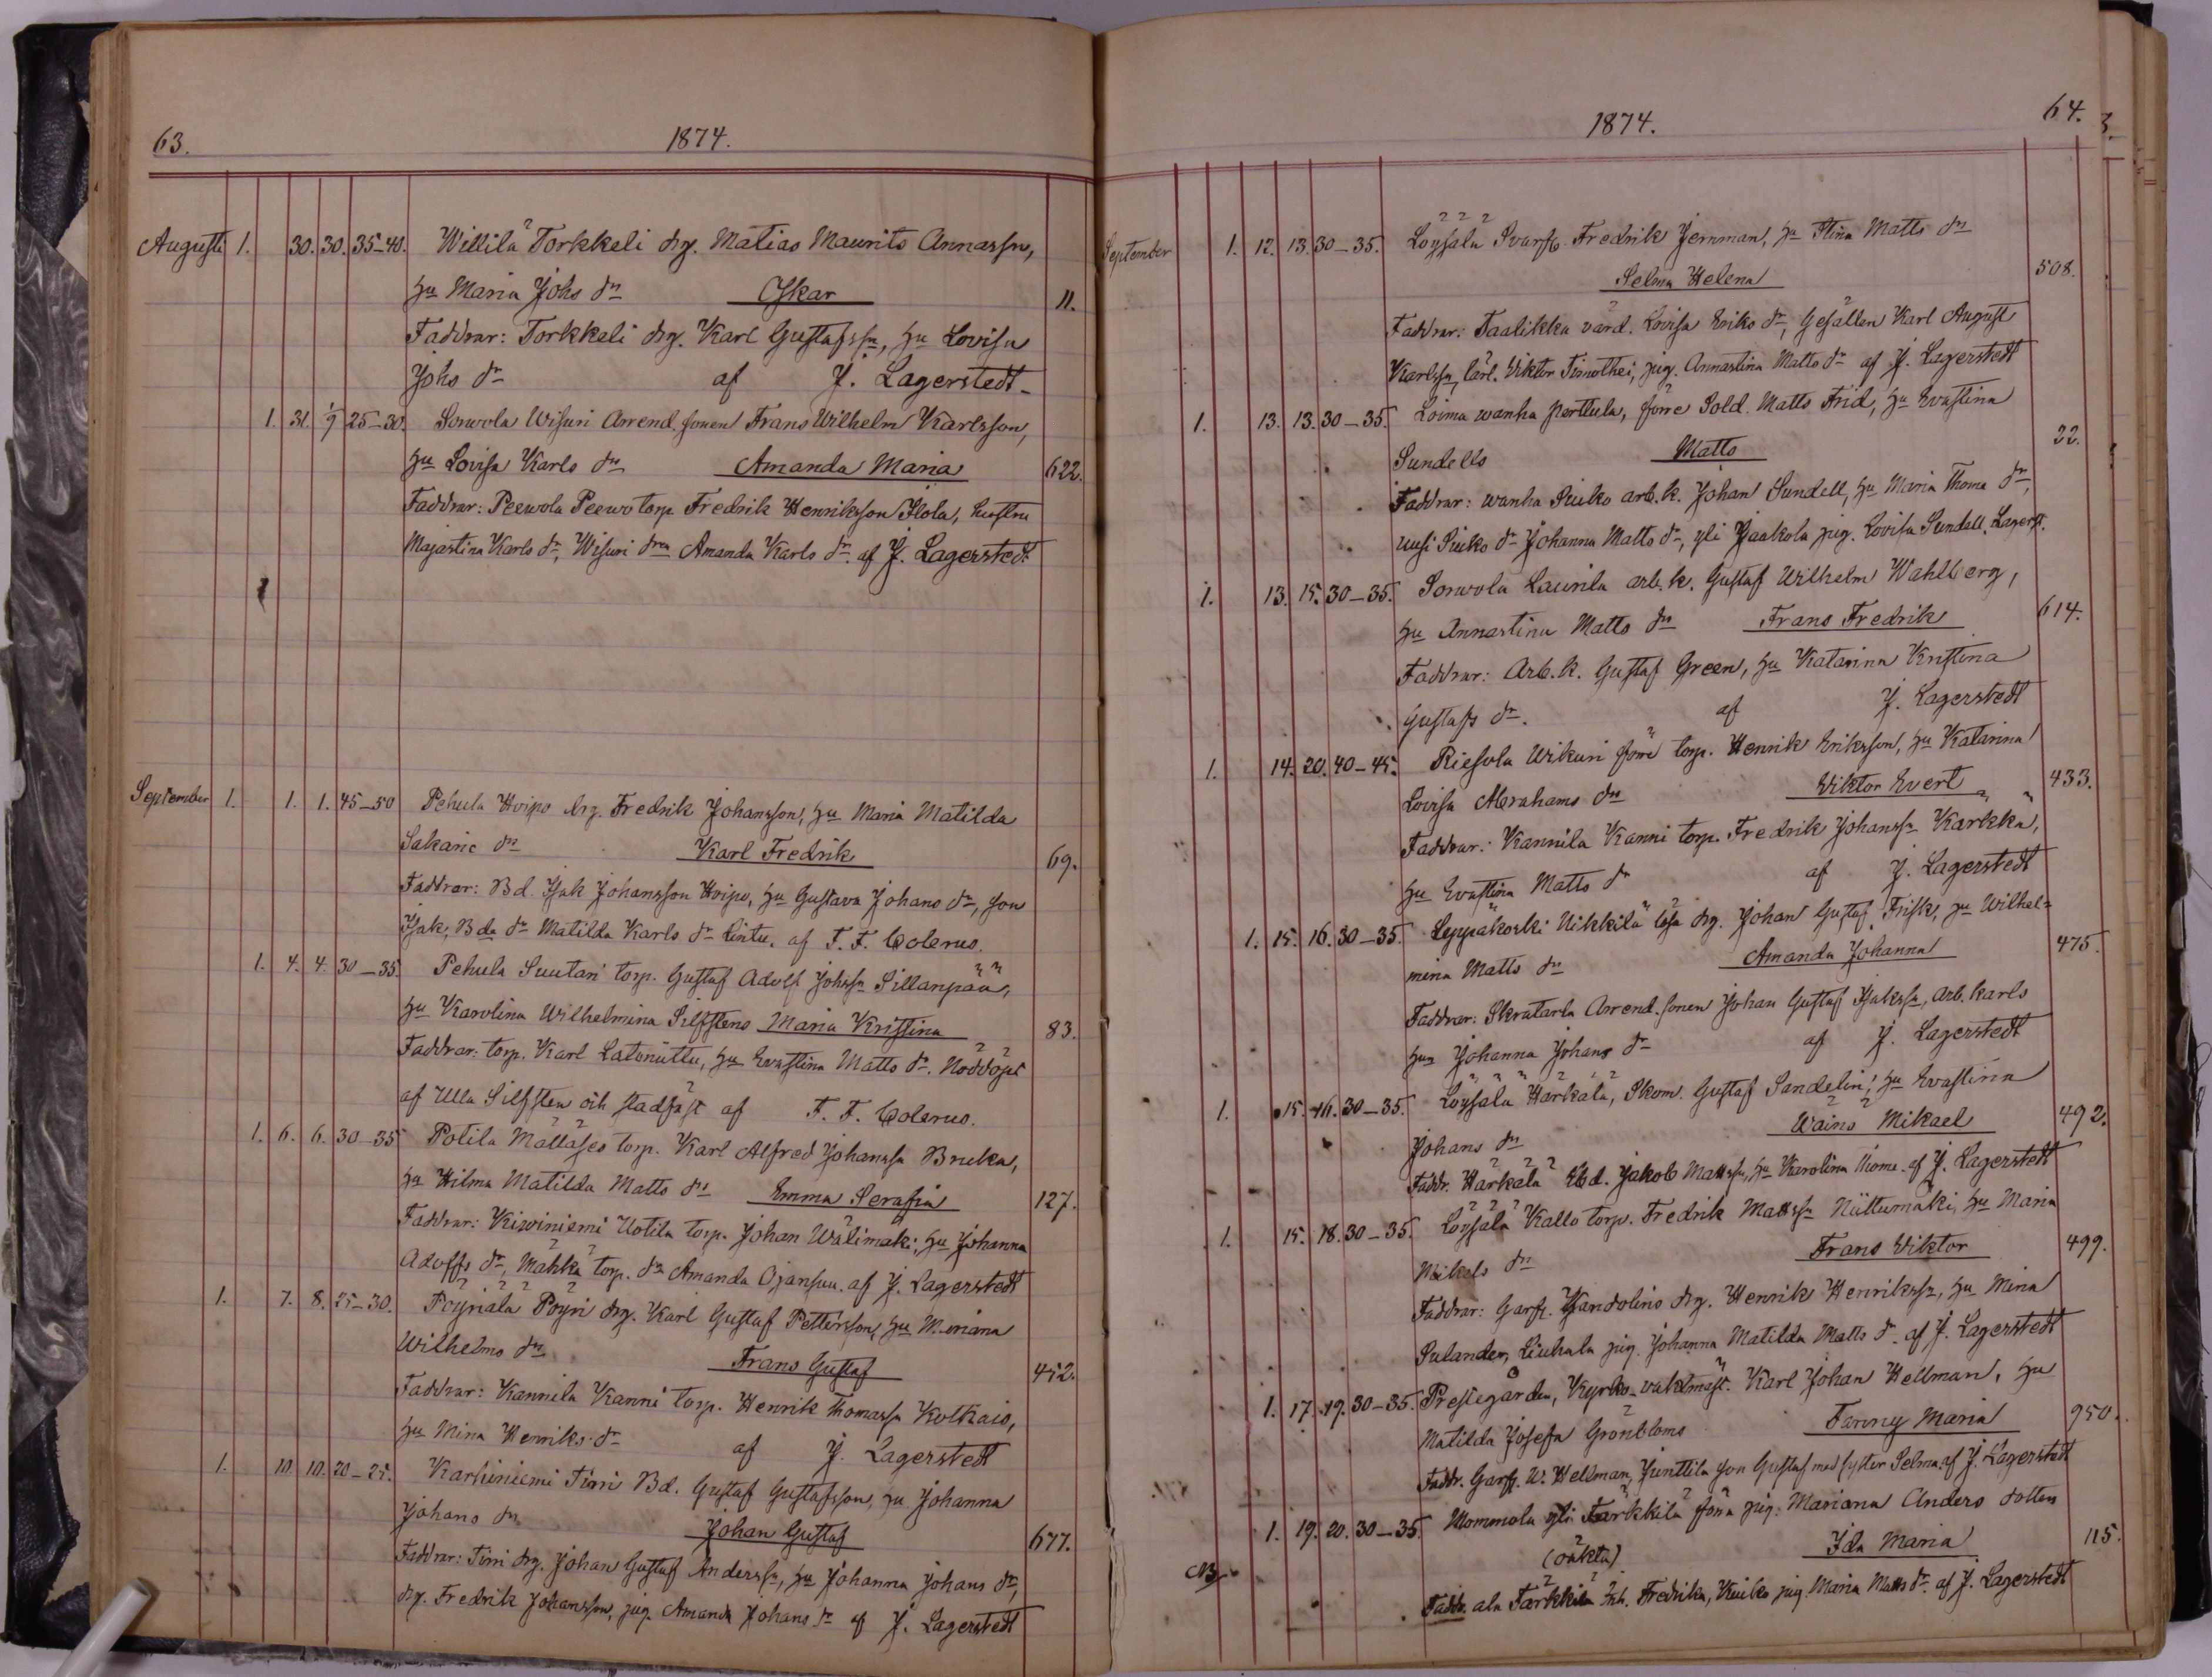 63. 1874.
Augusti 1. 30. 30. 35-40. Willilä Torkkeli drg. Matias Maurits Annassn,
hu Maria Johs dr Oskar 11.
Faddrar: Torkkeli drg. Karl Gustafssn, hu Lovisa
Johs dr af J. Lagerstedt
1. 31. 1/9 25-30. Sorvola Wisuri Arrend. sonen Frans Wilhelm Karlsson,
hu Lovisa Karls dr Amanda Maria 622.
Faddrar: Peewola Peewo torp. Fredrik Henriksson Ilola, hustru
Majastina Karls dr, Wisuri drn Amanda Karls dr af J. Lagerstedt
September 1. 1. 1. 45-50 Pehula Hoipo drg. Fredrik Johansson, hu Maria Matilda
Sakarie dr Karl Fredrik 69.
Faddrar: Bd. Isak Johansson Hoipo, hu Gustava Johans dr, son
Isak, Bda dr Matilda Karls dr Lintu. af F. F. Colerus.
1. 4. 4. 30-35. Pehula Suutari torp. Gustaf Adolf Johssn Sillanpää,
hu Karolina Wilhelmina Silfstens Maria Kristina 83.
Faddrar: torp. Karl Latoniittu, hu Evastina Matts dr. Nöddöpt
af Ulla Silfsten och stadfäst af F. F. Colerus.
1. 6. 6. 30-35 Potila Mällases torp. Karl Alfred Johanssn Bruka,
hu Hilma Matilda Matts dr Emma Serafia 127.
Faddrar: Kiwiniemi Uotila torp. Johan Wälimäki, hu Johanna
Adolfs dr, Mahka torp. dr Amanda Ojansuu. af J. Lagerstedt
1. 7. 8. 25-30. Pöyriälä Pöyri drg. Karl Gustaf Pettersson, hu Mariana
Wilhelms dr Frans Gustaf 452.
Faddrar: Kannila Kanni torp. Henrik Thomassn Kotkais,
hu Mina Henriks dr af J. Lagerstedt
1. 10. 10. 20-25. Karhiniemi Tirri Bd. Gustaf Gustafsson, hu Johanna
Johans dr Johan Gustaf 677.
Faddrar: Tirri drg. Johan Gustaf Anderssn, hu Johanna Johans dr,
drg. Fredrik Johansson, pig. Amanda Johans dr af J. Lagerstedt
1874. 64.
September 1. 12. 13. 30-35. Löysälä Svarfv. Fredrik Jernman, hu Stina Matts dr
Selma Helena 508.
Faddrar: Taalikka värd. Lovisa Eriks dr, Gesällen Karl August
Karlssn, lärl. Viktor Timothei, pig. Annastina Matts dr af J. Lagerstedt
1. 13. 13. 30-35. Loima wanha perttula, förre Sold. Matts Frid, hu Evastina
Sundells Matts 22.
Faddrar: wanha Suiko arb. k. Johan Sundell, hu Maria Thoma dr,
uusi Suiko dr Johanna Matts dr, yli Jaakola pig. Lovisa Sundell. Lagerst.
1. 13. 15. 30-35. Sorwola Laurila arb. k. Gustaf Wilhelm Wahlberg,
hu Annastina Matts dr Frans Fredrik 614.
Faddrar: Arb. k. Gustaf Green, hu Katarina Kristina
Gustafs dr. af J. Lagerstedt
1. 14. 20. 40-45. Riesola Wikuri förre torp. Henrik Eriksson, hu Katarina
Lovisa Abrahams dr Viktor Evert 433.
Faddrar: Kannila Kanni torp. Fredrik Johanssn Karkka,
hu Evastina Matts dr af J. Lagerstedt
1. 15. 16. 30-35. Leppäkoski Uikkilä lösa drg. Johan Gustaf Frisk, hu Wilhel=
mina Matts dr Amanda Johanna 475.
Faddrar: Skratarla Arrend. sonen Johan Gustaf Isakssn, arb. karls
hun Johanna Johans dr af J. Lagerstedt
1. 15. 16. 30-35. Löysälä Härkälä, Skom. Gustaf Sandelin, hu Evastina
Johans dr Wäinö Mikael 492.
Faddr. Härkälä Bd. Jakob Mattssn, hu Karolina Thoma. af J. Lagerstedt
1. 15. 18. 30-35. Löysälä Kallo torp. Fredrik Mattssn Niittumäki, hu Maria
Mikels dr Frans Viktor 499.
Faddrar: Garfv. Kandolins drg. Henrik Henrikssn, hu Mina
Sulander, Liuhala pig. Johanna Matilda Matts dr af J. Lagerstedt
1. 17. 19. 30-35. Prestegården, Kyrko-vaktmäst. Karl Johan Hellman, hu
Matilda Josefa Grönbloms Fanny Maria 950.
Faddr. Garfv. W. Hellman, Junttila son Gustaf med syster Selma. af J. Lagerstedt
1. 19. 20. 30-35. Mommola yli Tärkkilä förra pig. Mariana Anders dotter
NB (oäkta) Ida Maria 115.
Faddr. ala Tärkkilä Inh. Fredrika, Kuiko pig. Maria Matts dr af J. Lagerstedt